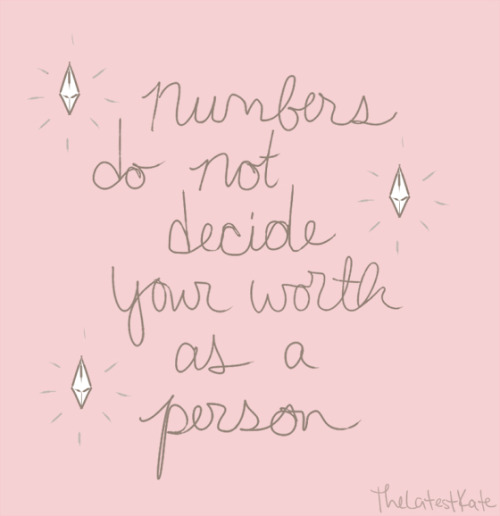 numbers
do not
decide
your worth
as a
person
TheLatestKate